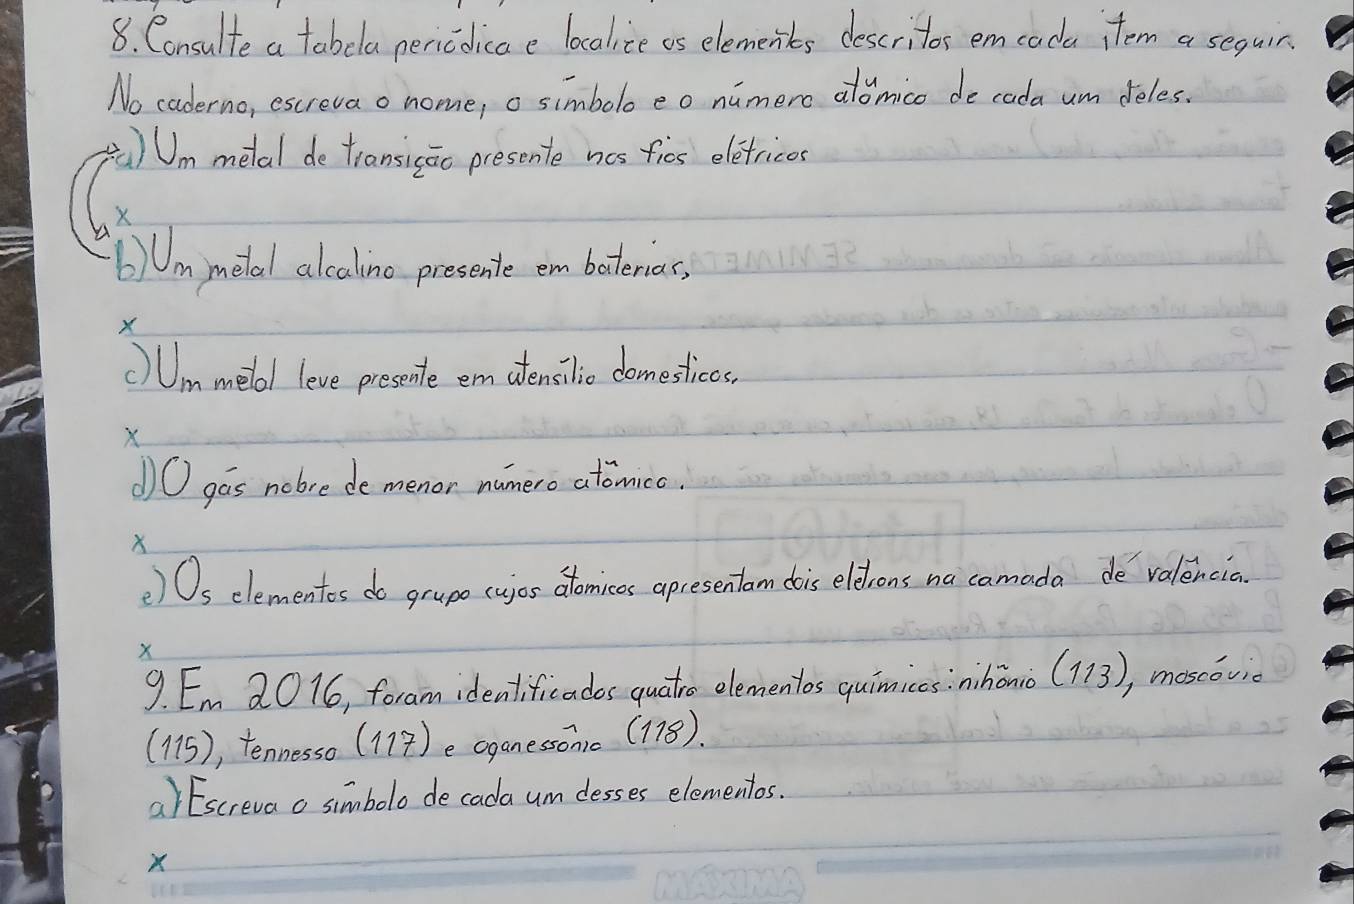 8. Consulte a tabela periódica e localize os elementos descritos em cada item a seguir.
No caderno, escreva o nome, o símbolo e o número atômico de cada um deles.
a) Um metal de transição presente nos fios elétricos
x
b) Um metal alcalino presente em baterias,
x
c) Um metal leve presente em utensílio domesticos.
x
d) O gás nobre de menor número atômico.
x
e) Os elementos do grupo cujos átomicos apresentam dois elétrons na camada de valência.
x
9. Em 2016, foram identificados quatro elementos químicos: nihônio (113), moscóvio
(115), tennesso (117) e oganessônio (118).
a) Escreva o símbolo de cada um desses elementos.
x
MÁXIMA